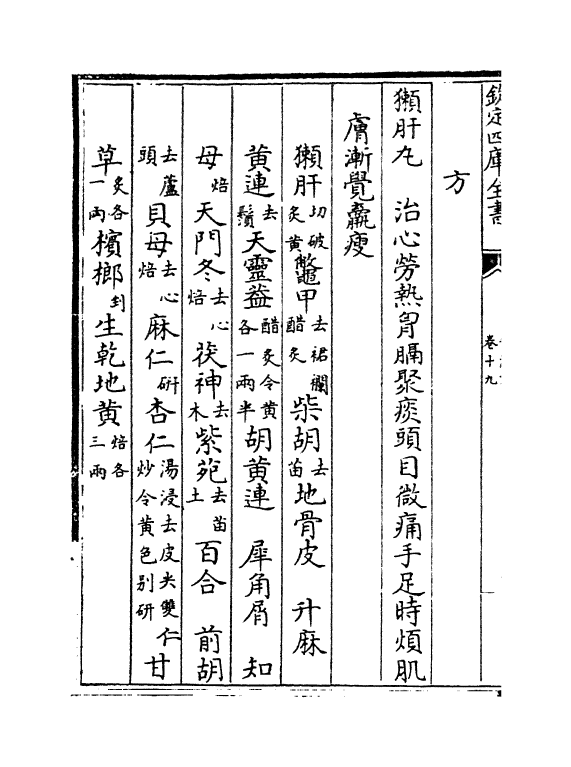 欽定四庫全書
卷十九
方
獺肝丸　治心勞熱胷膈聚痰頭目微痛手足時煩肌
膚漸覺羸瘦
獺肝切破炙黄鼈甲去裙襴醋炙柴胡去苗地骨皮　升麻
黄連去鬚天靈葢醋炙令黄各一兩半胡黄連　犀角屑　知
母焙天門冬去心焙茯神去木紫苑去苗土百合　前胡
去蘆頭貝母去心焙麻仁研杏仁湯浸去皮尖雙仁炒令黄色别研甘
草炙各一兩檳榔剉生乾地黄焙各三兩